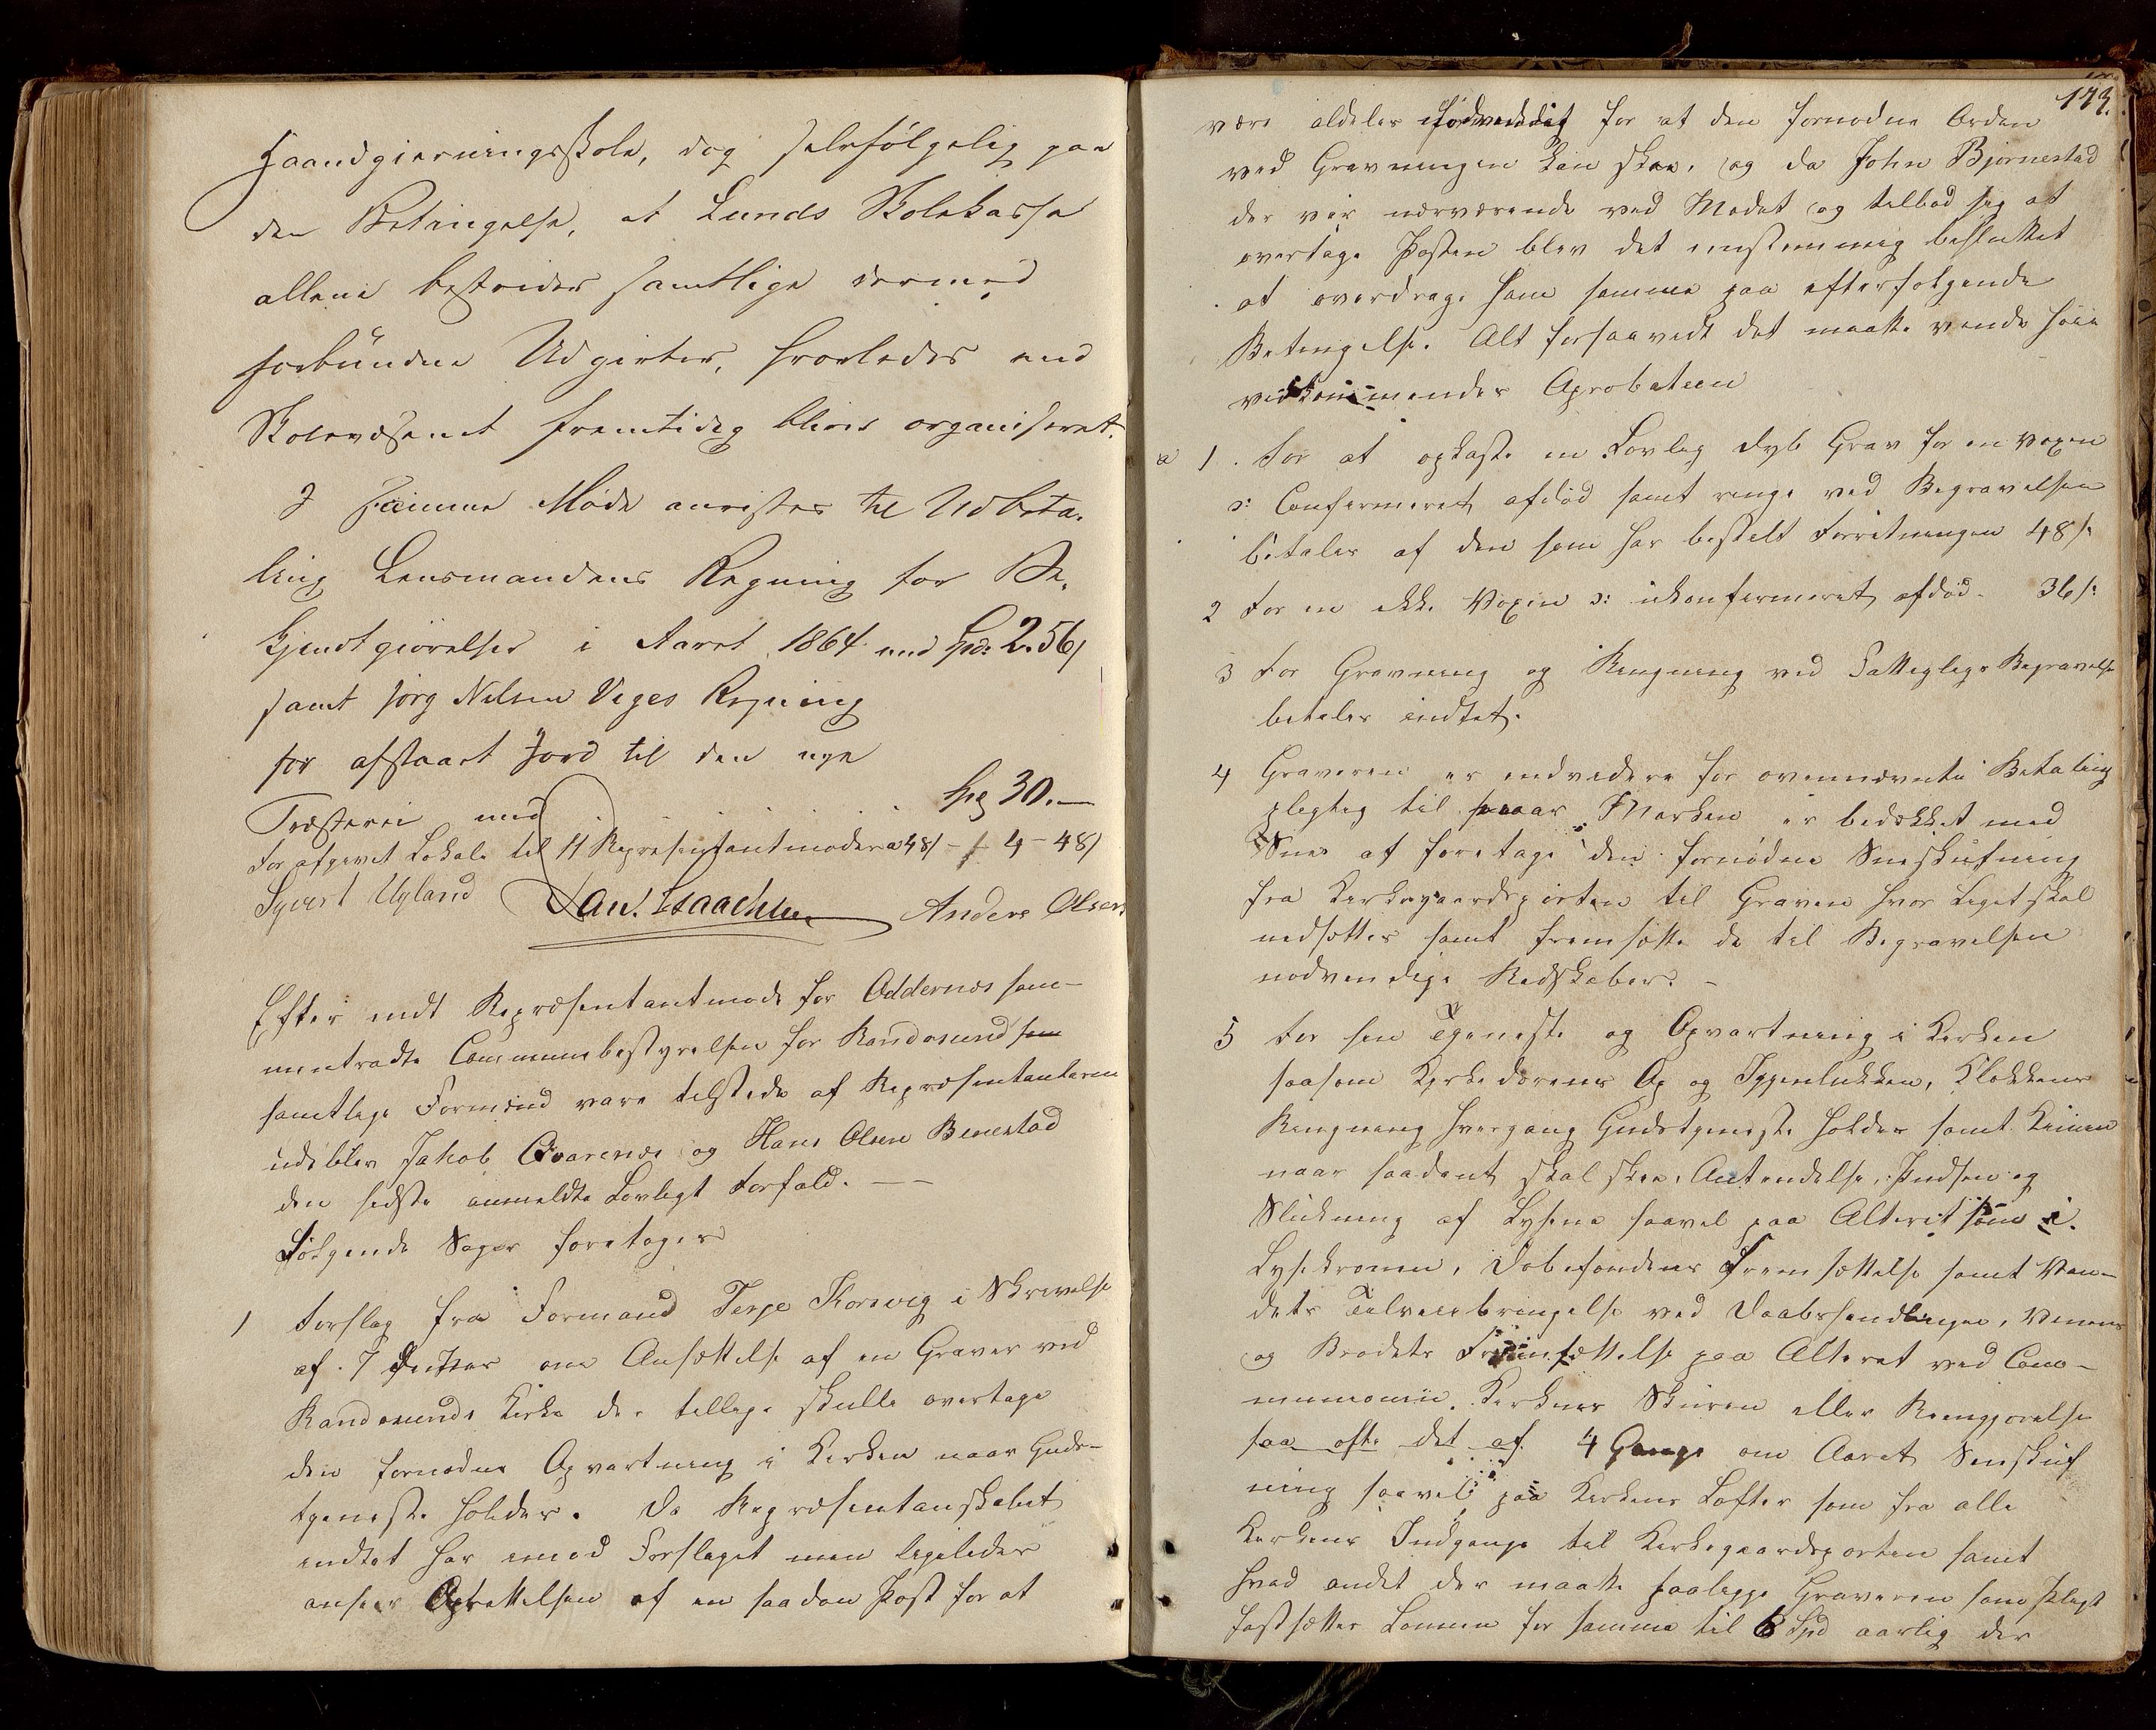 Haandgierningsskole, dog selvfölgelig paa
den Betingelse, at Lunds Skolekasse
allene bestrider samtlige dermed
forbundne Udgivter, hvorledes end
Skolevæsenet fremtidig bliver organiseret.
I samme Møde anvistes til Udbeta-
ling Lensmandens Regning for Be-
kjendtgiörelser i Aaret 1864 med Spd: 2.56/
samt Jörg Nilsen Viges Regning
for afstaaet Jord til den nye
Præstevei med Spd 30.—
For afgivet Lokale til 11 Representantmöder a 48/ - 4 - 48/
Syvert Ugland Dan. Isaachsen Anders Olsen
Efter endt Repræsentantmøde for Oddernes sam-
mentradte Communebestyrelsen for Randøsund
samtlige Formænd vare tilstede af Repræsentanterne
udeblev Jakob Qvarenes og Hans Olsen Benestad
den sidste anmeldte Lovligt Forfald. — —
Følgende Sager foretoges
1 Forslag fra Formand Terje Korsvig i Skrivelse
af 7 om Ansættelse af en Graver ved
Randøsunds Kirke der tillige skulle overtage
den fornødne Opvartning i Kirken naar Guds-
tjeneste holdes. Da Repræsentanskabet
indtet har imod Forslaget men ligeledes
anseer Oprettelsen af en saadan Post for at
173.
være aldeles nødvendig for at den fornødne Orden
ved Gravningen kan skee, og da John Bjørnestad
der var nærværende ved Mødet og tilbød sig at
overtage Posten blev det enstemmig besluttet
at overdrage ham samme paa efterfølgende
Betingelse. Alt forsaavidt det maatte vinde høie
vedkommendes Aprobation
a 1. For at opkaste en Lovlig dyb Grav for en voxen
ɔ: Confirmeret afdød samt ringe ved Begravelsen
betales af den som har bestilt Forretningen 48/:
2 For en ikke Voxen ɔ: ukonfirmeret afdød - 36/:
3 For Gravning og Ringning ved Fattigligs Begravelse
betales indtet.
4 Graveren er endvidere for ovennævnte Betaling
pligtig til naar Marken er bedækket med
Snee at foretage den fornødne Sneskufning
fra Kirkegaardsporten til Graven hvor Liget skal
nedsættes samt fremsætte de til Begravelsen
nødvendige Redskaber. -
5 For sin Tjeneste og Opvartning i Kirken
saasom Kirkedørenes Op og Igjenlukken, Klokkens
Ringning hvergang Gudstjeneste holdes samt Kimen
naar saadant skal skee, Antendelse, Pudsen og
Slukning af Lysene saavel paa Alteret som i
Lysekronen, Døbefondens Fremsættelse samt Van-
dets Tilveiebringelse ved Daabshandlingen, Vinens
og Brødets Fremsættelse paa Alteret ved Com-
munionen. Kirkens Skuren eller Rengjørelse
saa ofte det af 4 Gange om Aaret Sneskuf
ning saavel paa Kirkens Lofter som fra alle
Kirkens Indgange til Kirkegaardsporten samt
hvad andet der maatte paaligge Graveren som Pligt
fastsættes Lønnen for samme til 6 Spd aarlig der